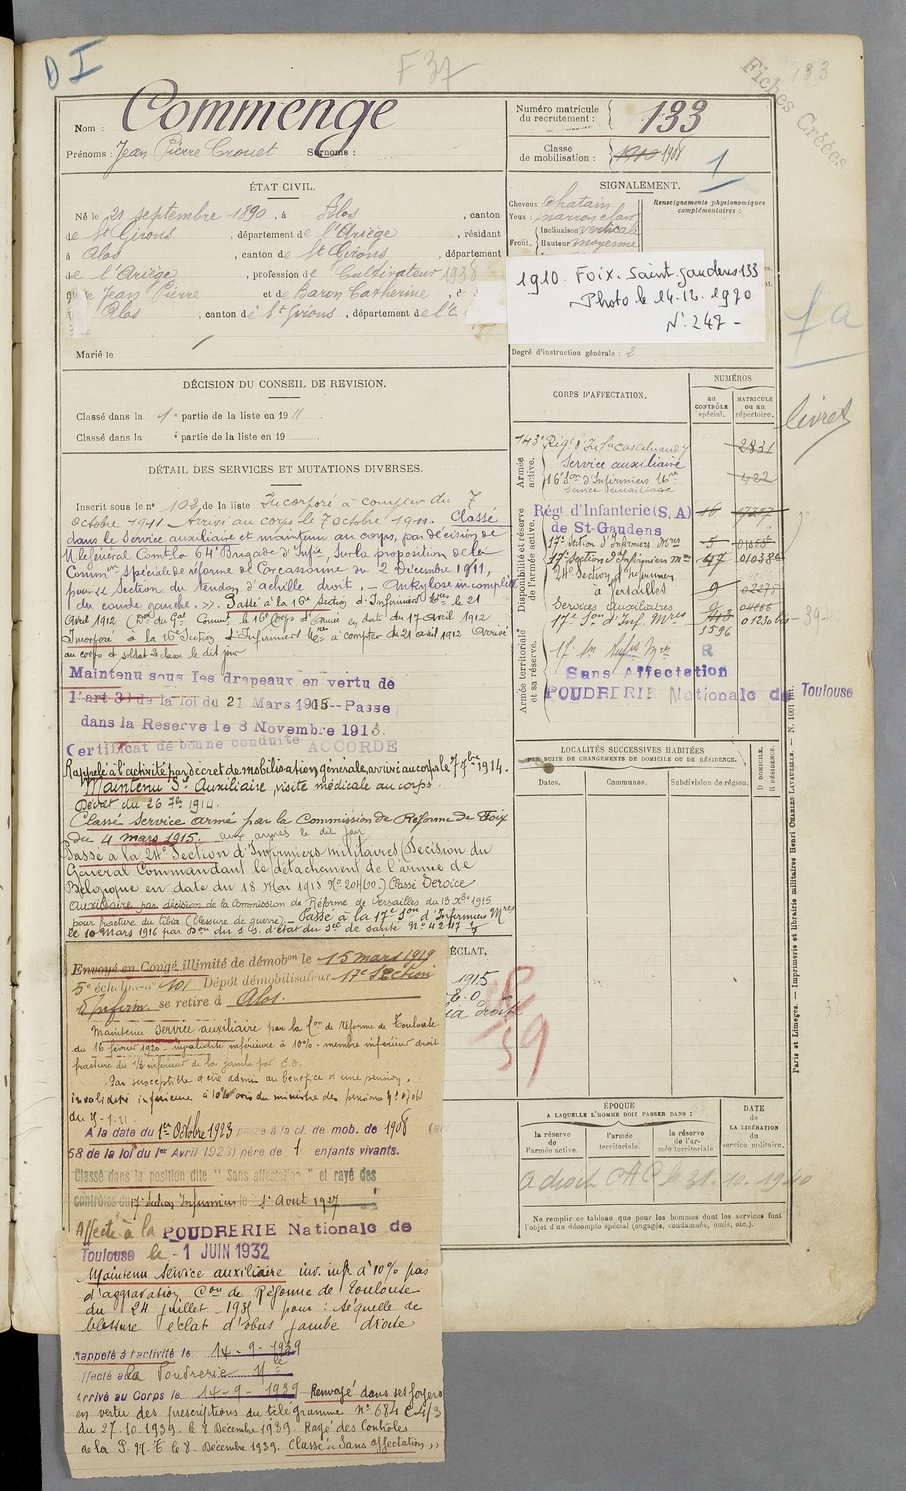 D I
F 37
Fiches Créées
133
Nom : Commenge
Prénoms : Jean Pierre Crouet Surnoms :
Numéro matricule du recrutement : 133
Classe de mobilisation : 1910 1908
1
ÉTAT CIVIL.
Né le 21 septembre 1890, à Alos, canton
de St Girons, département de l'Ariège, résidant
à Alos, canton de St Girons, département
de l'Ariège, profession de Cultivateur
Jean Pierre et de Baron Catherine
Alos, canton de St Girons, département de l'
Marié le
SIGNALEMENT.
Cheveux châtain
Yeux : marron clair
Front, Inclinaison verticale
Hauteur moyenne
Renseignements physionomiques complémentaires :
1910. Foix. Saint Gaudens 133
Photo le 14.12.1990
N° 247 -
Degré d'instruction générale : 2
1 a
livret
DÉCISION DU CONSEIL DE REVISION.
Classé dans la 1e partie de la liste en 1911
Classé dans la e partie de la liste en 19
DÉTAIL DES SERVICES ET MUTATIONS DIVERSES.
Inscrit sous le n° 102 de la liste Incorporé à compter du 7
octobre 1911 Arrivé au corps le 7 octobre 1911. Classé
dans le service auxiliaire et maintenu au corps, par décision de
M. le Général Comdt la 64e Brigade d'Infie, sur la proposition de la
Common spéciale de réforme de Carcassonne du 2 Décembre 1911,
pour « Section du tendon d'achille droit. - Ankylose incomplète
du coude gauche. ». Passé à la 16e Section d'Infirmiers le 21
Avril 1912 du 16e Corps d'Armée en date du 17 avril 1912
Incorporé à la 16e Section d'Infirmiers à compter du 21 avril 1912 Arrivé
au corps et soldat 2e classe le dit jour
Maintenu sous les drapeaux en vertu de
l'art 33 de la loi du 21 Mars 1905--Passe
dans la Reserve le 8 Novembre 1913.
Certificat de bonne conduite ACCORDE
Rappelé à l'activité par décret de mobilisation générale, arrivé au corps le 7 7bre 1914.
Maintenu Sce Auxiliaire, visite médicale au corps.
Décret du 26 7bre 1914.
Classé service armé par la Commission de Réforme de Foix
du 4 mars 1915. aux armées le dit jour
Passé à la 24e Section d'Infirmiers militaires (Décision du
Général Commandant le détachement de l'armée de
Belgique en date du 18 Mai 1915 Classé Service
auxiliaire par décision de la Commission de Réforme de Versailles du 13 Xbre 1915
pour fracture du tibia (blessure de guerre). - Passé à la 17e Son d'Infirmiers Mres
le 10 Mars 1916 par Don du S. S. d'état du Sce de santé N° 4247
Envoyé en Congé illimité de démobon le 15 mars 1919
5e échelon n° 101 Dépôt démobilisateur 17e Section
d'infirm. se retire à Alos.
Maintenu service auxiliaire par la Con de réforme de Toulouse
du 16 février 1920 - invalidité inférieure à 10% - membre inférieur droit
fracture du 1/3 inférieur de la jambe par E.O.
Pas susceptible d'être admis au bénéfice d'une pension,
invalidité inférieure à 10% avis du ministre des pensions
A la date du 1er Octobre 1923 passe à la cl. de mob. de 1908
58 de la loi du 1er Avril 1923) père de 1 enfants vivants.
Classé dans la position dite "Sans affectation" et rayé des
contrôles du 17e Section Infirmiers le 1er Aout 1927
Affecté à la POUDRERIE Nationale de
Toulouse le - 1 JUIN 1932
Maintenu service auxiliaire inv. infre à 10% pas
d'aggravation Con de Réforme de Toulouse
du 24 juillet 193 pour : séquelle de
blessure éclat d'obus jambe droite
Rappelé à l'activité le 14-9-1939
Affecté à la Poudrerie Nle
Arrivé au Corps le 14-9-1939 Renvoyé dans ses foyers
en vertu des prescriptions du télégramme N° 684
du 27.10.1939 - le 8 Décembre 1939. Rayé des Contrôles
de la P. N. T. le 8 Décembre 1939. Classé « Sans affectation »
CORPS D'AFFECTATION.
NUMÉROS
au CONTRÔLE spécial.
MATRICULE ou au répertoire.
Armée active.
143e Régt d'Infie Castelnaudary 2831
Service auxiliaire
16e Son d'Infirmiers 422
Service auxiliaire
Disponibilité et réserve de l'armée active.
Régt d'Infanterie (S, A) 16
de St-Gaudens
17e Section d'Infirmiers Mres 5
17e Section d'Infirmiers Mres 47 01038
24e Section d'Infirmiers
à Versailles 9 02275
Services Auxiliaires
17e Son d'Inf. Mres
1596
Armée territoriale et sa réserve.
17e Son Infirs Mres R
Sans Affectation
POUDRERIE Nationale de Toulouse
LOCALITÉS SUCCESSIVES HABITÉES
PAR SUITE DE CHANGEMENTS DE DOMICILE OU DE RÉSIDENCE.
Dates. Communes. Subdivision de région. D DOMICILE. R RÉSIDENCE.
ÉCLAT,
1915
droite
39
ÉPOQUE
A LAQUELLE L'HOMME DOIT PASSER DANS :
la réserve de l'armée active. l'armée territoriale. la réserve de l'armée territoriale
DATE de LA LIBÉRATION du service militaire.
a droit CAC le 31.10.1940
Ne remplir ce tableau que pour les hommes dont les services font
l'objet d'un décompte spécial (engagés, condamnés, omis, etc.).
Paris et Limoges. — Imprimerie et librairie militaires Henri CHARLES-LAVAUZELLE. — N. 1001